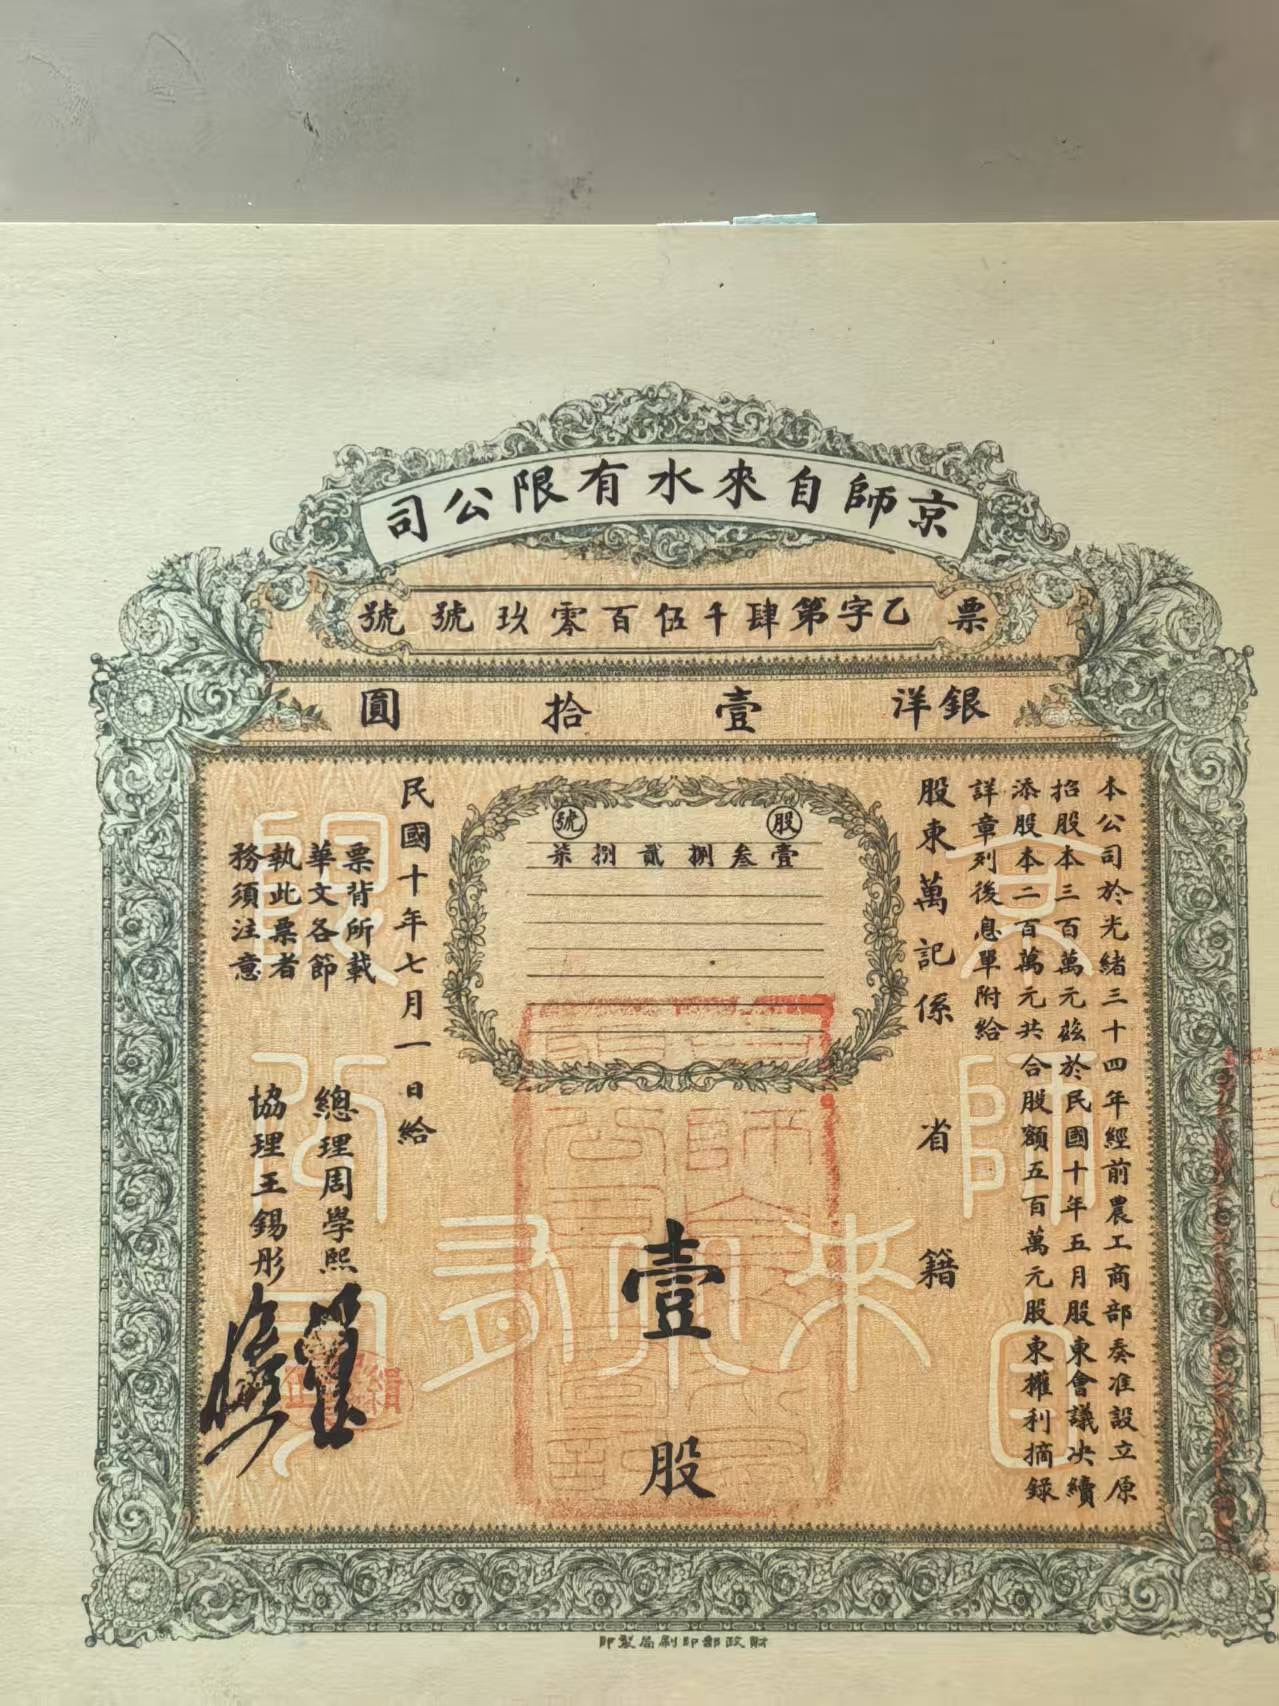 京師自來水有限公司
票乙字第肆千伍百零玖號號
銀洋壹拾圓
本公司於光緒三十四年經前農工商部奏准設立原
招股本三百萬元茲於民國十年五月股東會議決續
添股本二百萬元共合股額五百萬元股東權利摘錄
詳章列後息單附給
股東萬記係 省 籍
股 號
壹叁捌貳捌柒
壹股
民國十年七月一日給
票背所載
華文各節
執此票者
務須注意
總理周學熙
協理王錫彤
京師自來水有限公司
財政部印刷局製印